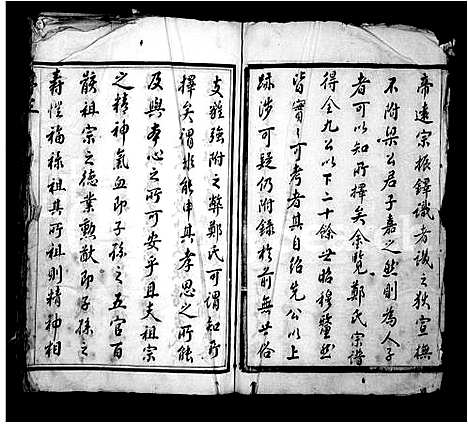 帝遠宗振鐸識者譏之狄宣撫
不附梁公君子嘉之然則為人子
者可以知所擇矣余覧鄭氏宗譜
得全九公以下二十餘世昭穆釐然
皆實〻可考者其自紹先公以上
跡涉可疑仍附錄於前無世俗
支離強附之弊鄭氏可謂知所
擇矣謂非能申其孝思之所能
及與本心之所可安乎且夫祖宗
之精神氣血即子孫之五官百
骸祖宗之德業勳猷即子孫之
壽愷福祿祖其所祖則精神相